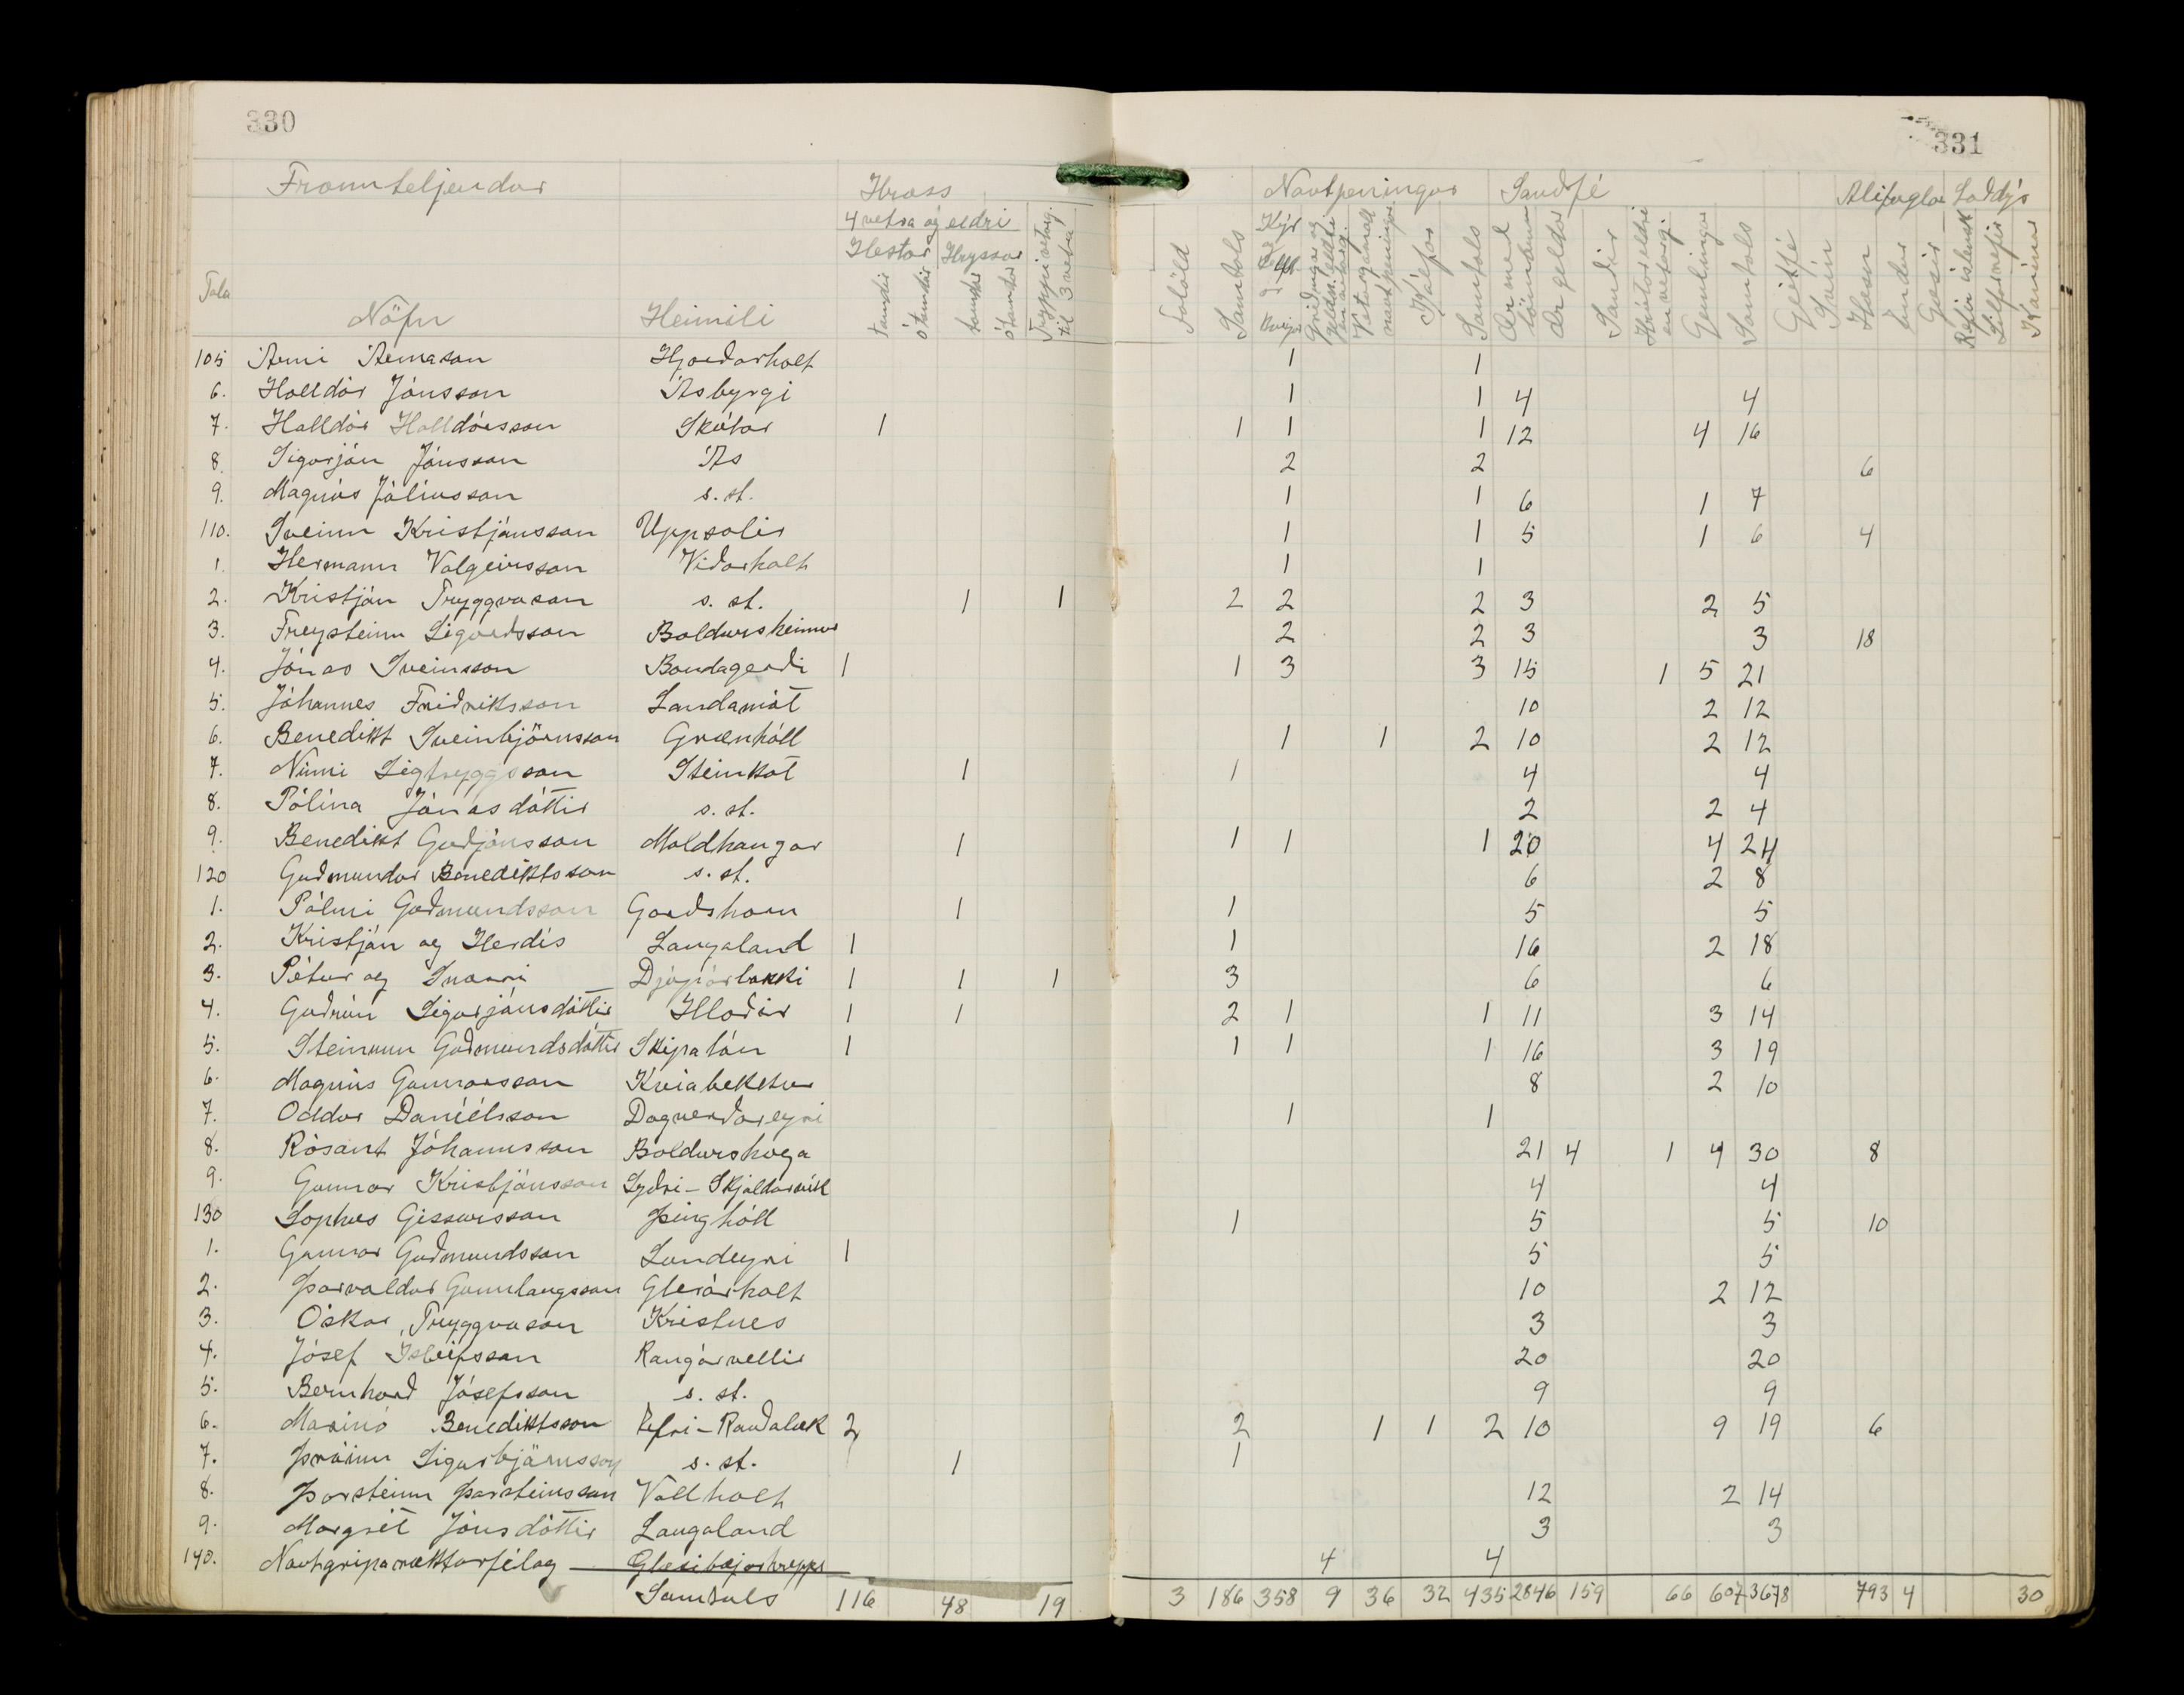 330
331
Framteljendur Hross Nautpeningur Sauðfé Alifuglar Loðdýr
4 vetra og eldri
Hestar Hryssur
Tala Nöfn Heimili tamdir ótamdir tamdar ótamdar Tryppi veturg. til 3 vetra Folöld Samtals Kýr Geldn. eldri en veturg. Veturgamall nautpeningur Kálfar Samtals Ær með lömbum Ær geldar Sauðir Hrútar eldri en veturg. Gemlingar Samtals Geitfé Svín Hæsn Endur Gæsir Refir íslensk Silfurrefir Kanínur
105 Árni Árnason Hjarðarholt 1 1
6. Halldór Jónsson Ásbyrgi 1 1 4 4
7. Halldór Halldórsson Skútar 1 1 1 1 12 4 16
8. Sigurjón Jónsson Ás 2 2 6
9. Magnús Júlíusson s. st. 1 1 6 1 7
110. Sveinn Kristjánsson Uppsalir 1 1 5 1 6 4
1. Hermann Valgeirsson Viðarholt 1 1
2. Kristján Tryggvason s. st. 1 1 2 2 2 3 2 5
3. Freysteinn Sigurðsson Baldursheimur 2 2 3 3 18
4. Jónas Sveinsson Bandagerði 1 1 3 3 15 1 5 21
5. Jóhannes Friðriksson Landamót 10 2 12
6. Benedikt Sveinbjörnsson Grænhóll 1 1 2 10 2 12
7. Ninni Sigtryggsson Steinkot 1 1 4 4
8. Pólína Jónasdóttir s. st. 2 2 4
9. Benedikt Guðjónsson Moldhaugar 1 1 1 1 20 4 24
120 Guðmundur Benediktsson s. st. 6 2 8
1. Pálmi Guðmundsson Garðshorn 1 1 5 5
2. Kristján og Herdís Laugaland 1 1 16 2 18
3. Pétur og Snorri Djúpárbakki 1 1 1 3 6 6
4. Guðrún Sigurjónsdóttir Hlaðir 1 1 2 1 1 11 3 14
5. Steinunn Guðmundsdóttir Skipalón 1 1 1 1 16 3 19
6. Magnús Gunnarsson Kviabekkur 8 2 10
7. Oddur Daníélsson Dagverðareyri 1 1
8. Rósant Jóhannsson Baldurshaga 21 4 1 4 30 8
9. Gunnar Kristjánsson Syðri-Skjaldarvík 4 4
130 Sophus Gissursson Þinghóll 1 5 5 10
1. Gunnar Guðmundsson Sandeyri 1 5 5
2. Þorvaldur Gunnlaugsson Glerárholt 10 2 12
3. Óskar Tryggvason Kristnes 3 3
4. Jósef Ísleifsson Rangárvellir 20 20
5. Bernharð Jósefsson s. st. 9 9
6. Marinó Benediktsson Efri-Rauðalæk 2 2 1 1 2 10 9 19 6
7. Þráinn Sigurbjörnsson s. st. 1 1
8. Þorsteinn Þorsteinsson Vallholt 12 2 14
9. Margrét Jónsdóttir Laugaland 3 3
140. Nautgriparæktarfélag — Glæsibæjarhrepps 4 4
Samtals 116 48 19 3 186 358 9 36 32 435 2846 159 66 607 3678 793 4 30